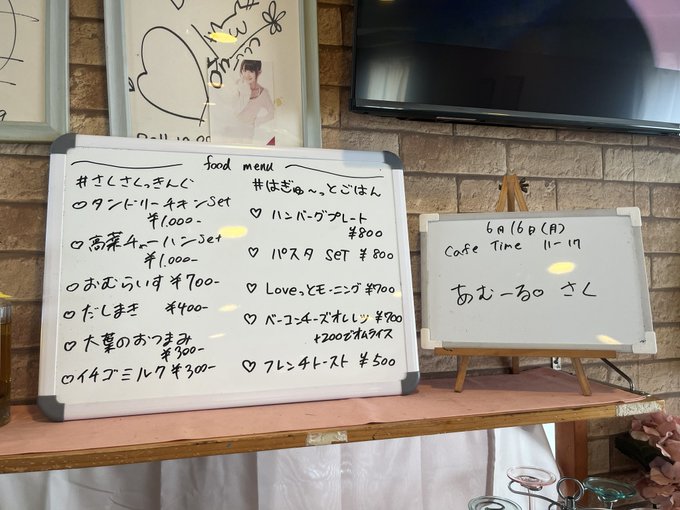 food menu
#さくさくっきんぐ
タンドリーチキンSet
¥1.000-
高菜チャーハンSet
¥1.000-
おむらいす ¥700-
だしまき ¥400-
大葉のおつまみ
¥300-
イチゴミルク ¥300-
#はぎゅ〜っとごはん
♡ ハンバーグプレート
¥800
♡ パスタ SET ¥800
♡ Loveっとモーニング ¥700
♡ ベーコンチーズオムレツ ¥700
+200でオムライス
♡ フレンチトースト ¥500
6月16日(月)
Cafe Time 11-17
あむーる。 さく